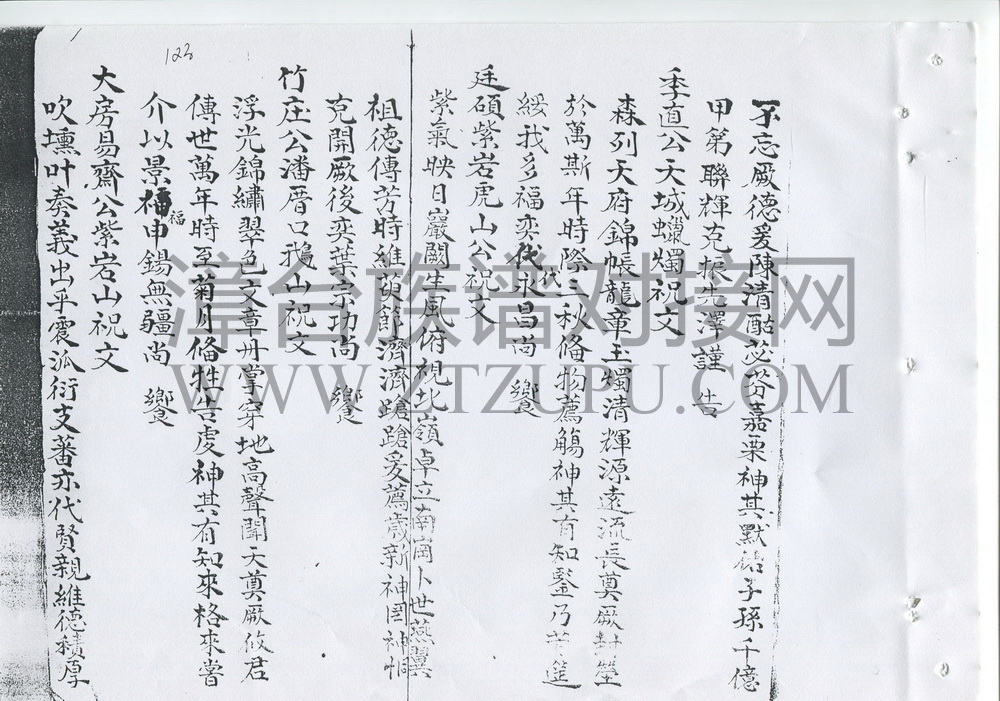 不忘厥德爰陳清酤苾芬嘉栗神其默佑子孫千億
甲第聯輝克振先澤謹 告
季直公天城蠟燭祝文
森列天府錦帳龍章玉燭清輝源遠流長奠厥封塋
於萬斯年時際三秋備物薦觴神其有知鑒乃筵
綏我多福奕代永昌尚 饗
代
廷碩紫岩虎山公祝文
紫氣映日巖闕生風俯視北嶺卓立南崗卜世燕翼
祖德傳芳時維節濟濟蹌蹌爰薦歲新神罔神恫
克開厥後奕葉宗功尚 饗
竹庄公潘厝口鵝山祝文
浮光錦繡翠色文章丹掌穿地高聲聞天奠厥攸君
傳世萬年時至菊月俻牲告虔神其有知來格來嘗
介以景福申錫無疆尚 饗
福
大房易齋公紫岩山祝文
吹壎叶奏義出乎震派衍支蕃亦代賢親維德積厚
122
漳台族谱对接网
WWW.ZTZUPU.COM